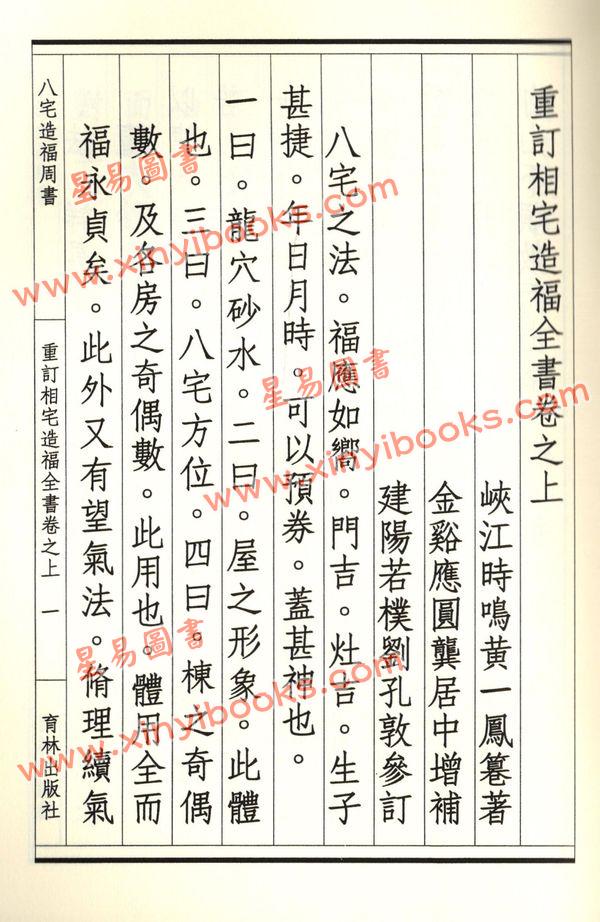 重訂相宅造福全書卷之上
峽江時鳴黃一鳳篹著
金谿應圓龔居中增補
建陽若樸劉孔敦參訂
八宅之法。福應如嚮。門吉。灶吉。生子
甚捷。年日月時。可以預券。蓋甚神也。
一曰。龍穴砂水。二曰。屋之形象。此體
也。三曰。八宅方位。四曰。棟之奇偶
數。及各房之奇偶數。此用也。體用全而
福永貞矣。此外又有望氣法。脩理續氣
八宅造福周書
重訂相宅造福全書卷之上
一
育林出版社
星易圖書
www.xinyibooks.com
星易圖書
www.xinyibooks.com
星易圖書
www.xinyibooks.com